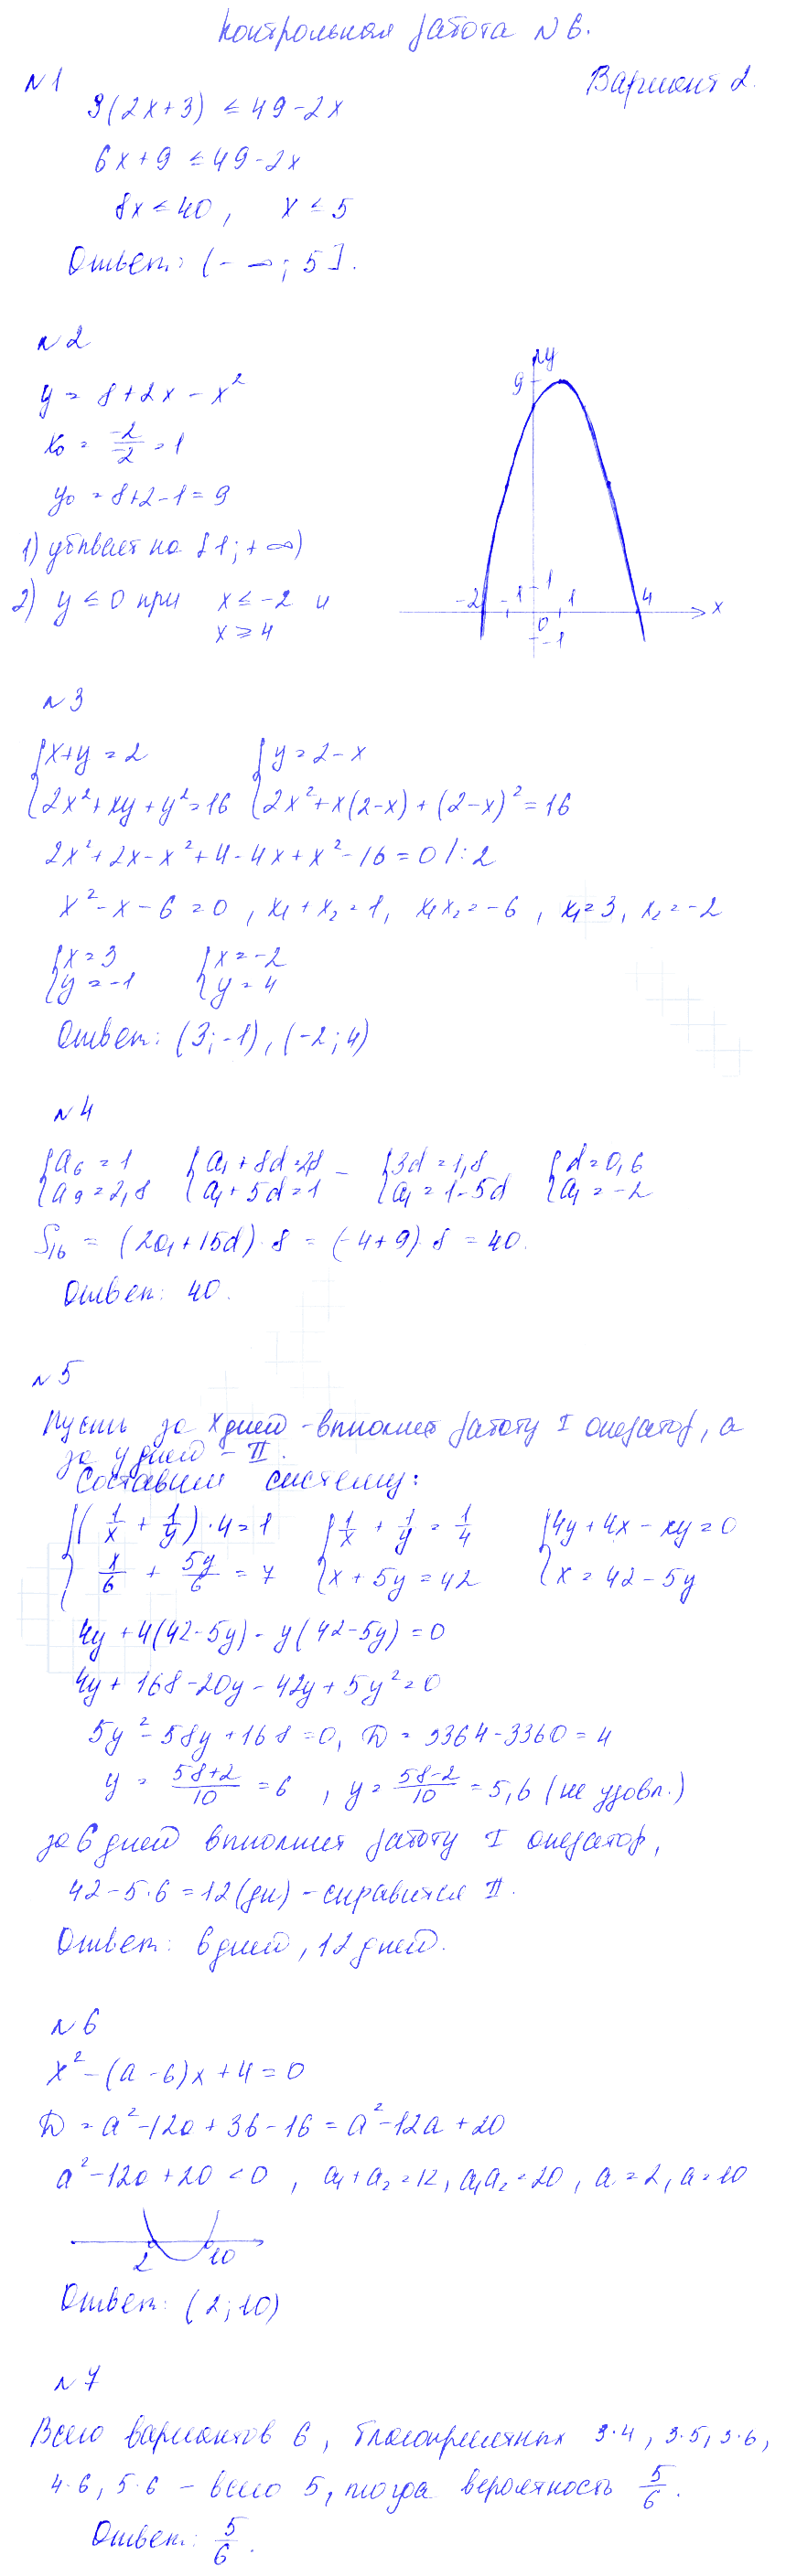 Контрольная работа №6.
Вариант 2.
№1
3(2x+3) ≤ 49-2x
6x+9 ≤ 49-2x
8x ≤ 40, x ≤ 5
Ответ: (-∞; 5].
№2
y = 8+2x-x²
x₀ = -2/-2 = 1
y₀ = 8+2-1 = 9
1) убывает на [1; +∞)
2) y ≤ 0 при x ≤ -2 и
x ≥ 4
y
9
1
-2 -1 0 1 4 x
-1
№3
{x+y=2 {y=2-x
{2x²+xy+y²=16 {2x²+x(2-x)+(2-x)²=16
2x²+2x-x²+4-4x+x²-16=0 |:2
x²-x-6=0, x₁+x₂=1, x₁x₂=-6, x₁=3, x₂=-2
{x=3 {x=-2
{y=-1 {y=4
Ответ: (3;-1), (-2;4)
№4
{a₆=1 {a₁+8d=2,8 - {3d=1,8 {d=0,6
{a₉=2,8 {a₁+5d=1 {a₁=1-5d {a₁=-2
S₁₆ = (2a₁+15d)·8 = (-4+9)·8 = 40.
Ответ: 40.
№5
Пусть за x дней - выполнит работу I оператор, а
за y дней - II.
Составим систему:
{(1/x + 1/y)·4=1 {1/x + 1/y = 1/4 {4y+4x-xy=0
{x/6 + 5y/6 = 7 {x+5y=42 {x=42-5y
4y+4(42-5y)-y(42-5y)=0
4y+168-20y-42y+5y²=0
5y²-58y+168=0, D=3364-3360=4
y = (58+2)/10 = 6, y = (58-2)/10 = 5,6 (не удовл.)
за 6 дней выполнит работу I оператор,
42-5·6=12(дн) - справится II.
Ответ: 6 дней, 12 дней.
№6
x²-(a-6)x+4=0
D = a²-12a+36-16 = a²-12a+20
a²-12a+20<0, a₁+a₂=12, a₁a₂=20, a=2, a=10
2 10
Ответ: (2;10)
№7
Всего вариантов 6, благоприятных 3·4, 3·5, 3·6,
4·6, 5·6 - всего 5, тогда вероятность 5/6.
Ответ: 5/6.